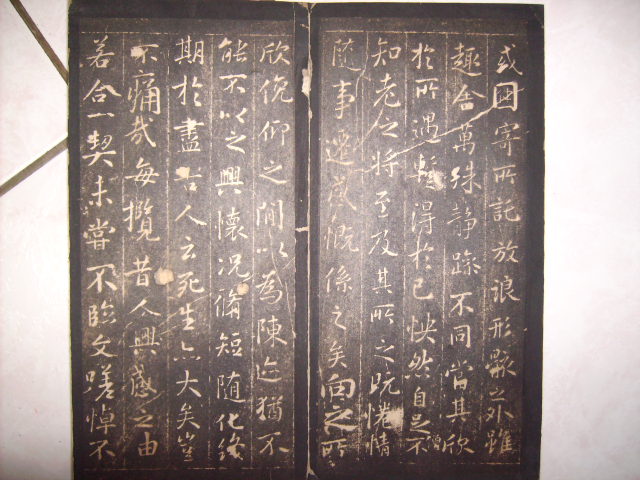 或因寄所託放浪形骸之外雖
趣舍萬殊静躁不同當其欣
於所遇暫得於己怏然自足不
知老之將至及其所之既惓情
隨事遷感慨係之矣向之所
欣俛仰之閒以為陳迹猶不
能不以之興懷況脩短隨化終
期於盡古人云死生亦大矣豈
不痛哉每攬昔人興感之由
若合一契未嘗不臨文嗟悼不